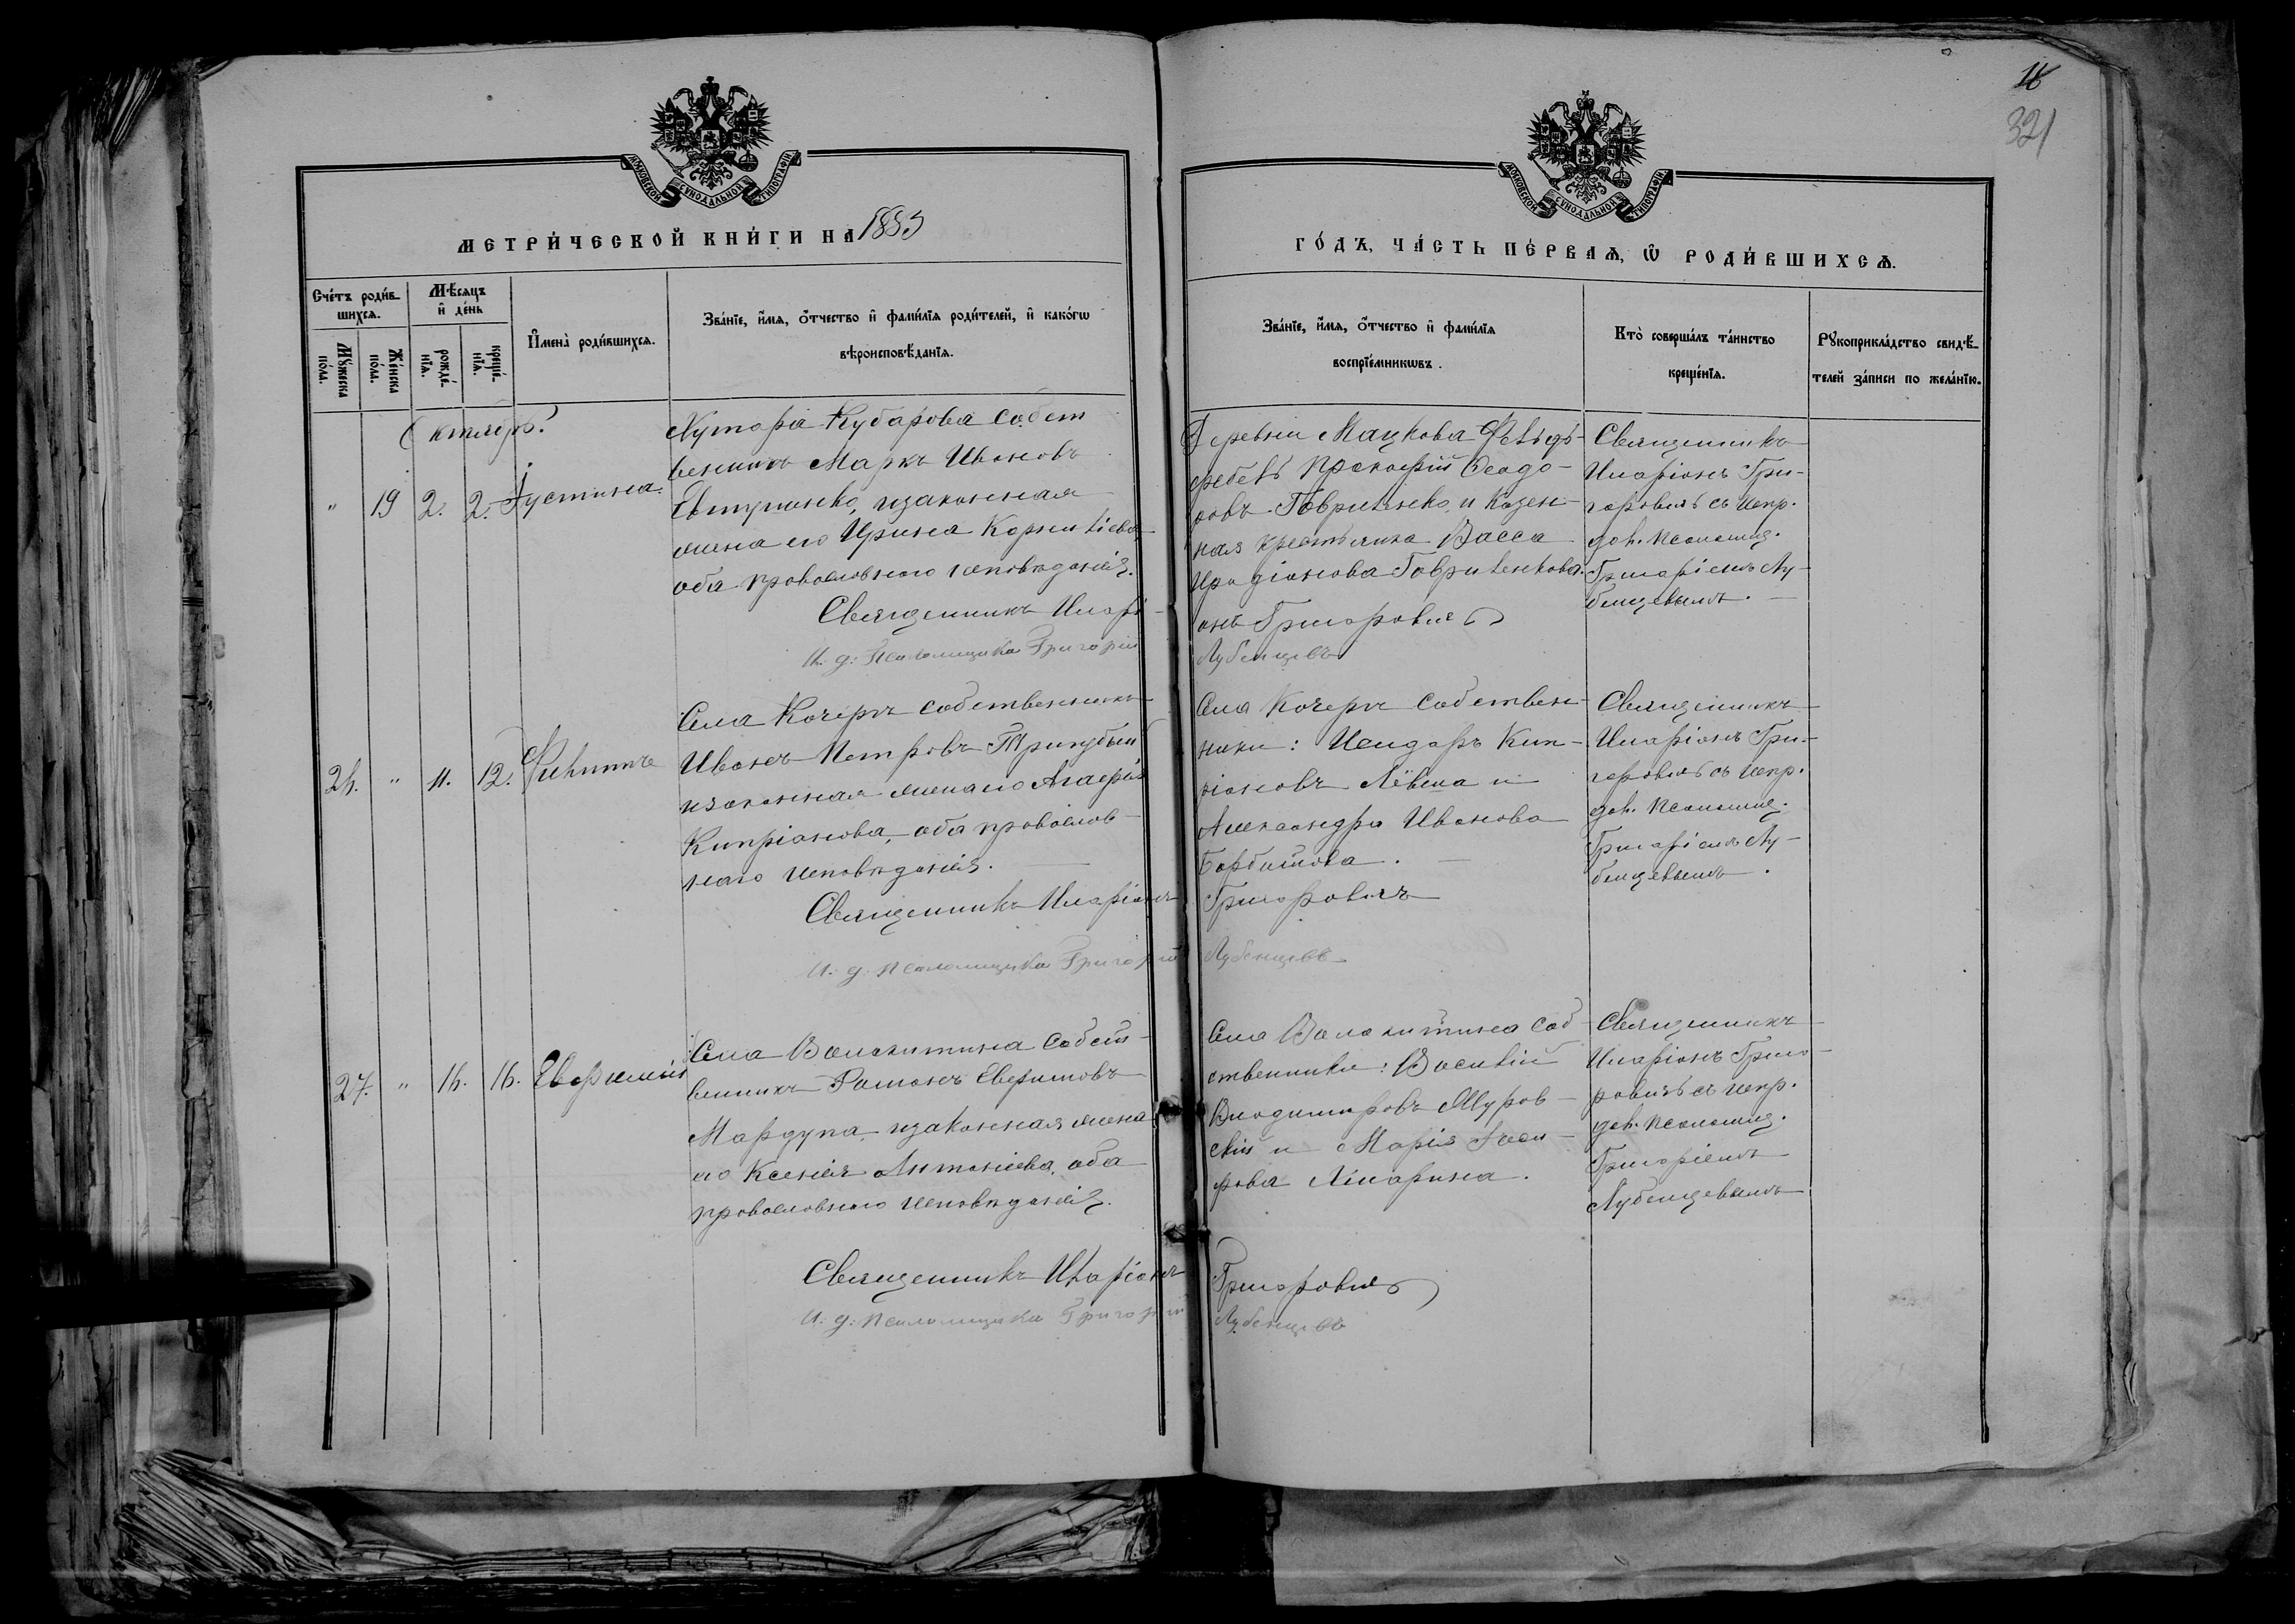 16
321
МОСКОВСКОЙ СѴНОДАЛЬНОЙ ТИПОГРАФІИ
МОСКОВСКОЙ СѴНОДАЛЬНОЙ ТИПОГРАФІИ
МЕТРИ́ЧЕСКОЙ КНИ́ГИ НА 1883
ГО́ДЪ, ЧА́СТЬ ПЕ́РВАѦ, Ѡ҆ РОДИ́ВШИХСѦ.
Сче́тъ роди́в-
шихсѧ.
Мѣ́сѧцъ
и҆ де́нь
Мꙋ́жеска
по́ла.
Же́нска
по́ла.
рожде́-
нїѧ.
креще́-
нїѧ.
И҆мена̀ роди́вшихсѧ.
Зва́нїе, и҆́мѧ, ѻ҆́тчество и҆ фами́лїѧ роди́телей, и҆ како́гѡ
вѣроисповѣ́данїѧ.
Зва́нїе, и҆́мѧ, ѻ҆́тчество и҆ фами́лїѧ
воспрїе́мникѡвъ.
Кто̀ соверша́лъ та́инство
креще́нїѧ.
Рꙋкоприкла́дство свидѣ́-
телей за́писи по жела́нїю.
Октябрь.
" 19 2. 2. Іустина.
Хутора Кубарова собст
венникъ Маркъ Ивановъ
Евтушенко, изаконная
жена его Ирина Корниліева,
оба православнаго исповѣданія.
Священникъ Иларі-
И. д: Псаломщика Григорій
Деревни Мацкова
Прокофій Феодо-
ровъ Гавриленко, и Казен-
ная крестьянка Васса
Иродіонова Гавриленкова.
онъ Григоровичъ
Лубенцевъ
Священникъ
Иларіонъ Гри-
горовичъ съ испр.
дол. псаломщ.
Григоріемъ Лу-
бенцевымъ.
24. " 11. 12. Филиппъ
Села Кочергъ собственникъ
Иванъ Петровъ Тригубый
изаконная жена его
Кипріанова, оба православ-
наго исповѣданія.
Священникъ Иларіонъ
И. д: псаломщика Григорій
Села Кочергъ собствен-
ники: Исидоръ Кип-
ріановъ Лёвша и
Александра Иванова
Григоровичъ
Лубенцевъ
Священникъ
Иларіонъ Гри-
горовичъ съ испр.
дол. псаломщ.
Григоріемъ Лу-
бенцевымъ.
27. " 16. 16. Евфимій
Села Волокитина собст-
венникъ Романъ Евфимовъ
изаконная жена
его Ксенія Антоніева, оба
православнаго исповѣданія.
Священникъ Иларіонъ
И. д: псаломщика Григорій
Села Волокитина соб-
ственники: Василій
Владимировъ Муров-
скій и Марія
Григоровичъ
Лубенцевъ
Священникъ
Иларіонъ Григо-
ровичъ съ испр.
дол. псаломщ.
Григоріемъ
Лубенцевымъ